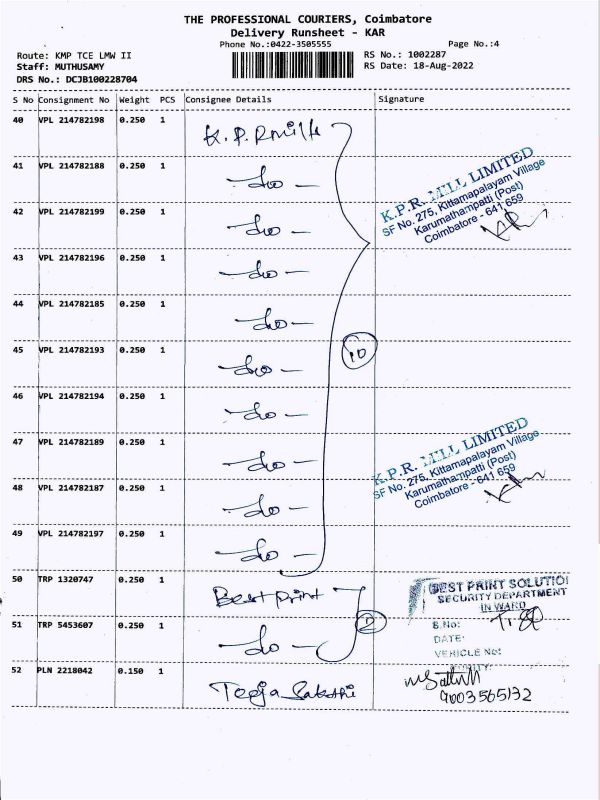 THE PROFESSIONAL COURIERS, Coimbatore
Delivery Runsheet - KAR
Phone No.:0422-3505555
Page No.:4
Route: KMP TCE LMW II
RS No.: 1002287
Staff: MUTHUSAMY
RS Date: 18-Aug-2022
DRS No.: DCJB100228704
S No Consignment No Weight PCS Consignee Details Signature
40 VPL 214782198 0.250 1 K.P.R mills
41 VPL 214782188 0.250 1 - do -
K.P.R. MILL LIMITED
SF No. 275, Kittampalayam Village
Karumathampatti (Post)
Coimbatore - 641 659
42 VPL 214782199 0.250 1 - do -
43 VPL 214782196 0.250 1 - do -
44 VPL 214782185 0.250 1 - do -
45 VPL 214782193 0.250 1 - do -
10
46 VPL 214782194 0.250 1 - do -
47 VPL 214782189 0.250 1 - do -
K.P.R. MILL LIMITED
SF No. 275, Kittampalayam Village
Karumathampatti (Post)
Coimbatore - 641 659
48 VPL 214782187 0.250 1 - do -
49 VPL 214782197 0.250 1 - do -
50 TRP 1320747 0.250 1 Best print
BEST PRINT SOLUTION
SECURITY DEPARTMENT
IN WARD
51 TRP 5453607 0.250 1 - do -
2
S.No:
DATE:
VEHICLE No:
52 PLN 2218042 0.150 1 Teeja Sakthi
9003565132